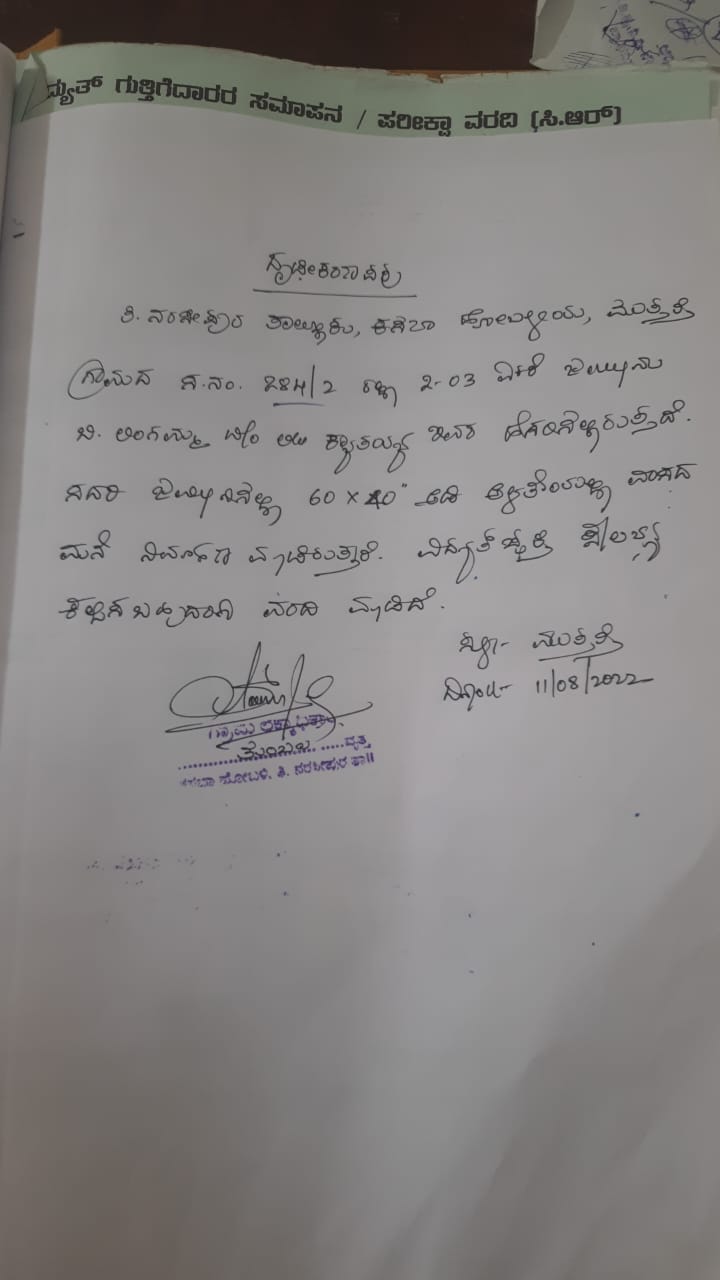 ದ್ಯುತ್ ಗುತ್ತಿಗೆದಾರರ ಸಮಾಪನ / ಪರೀಕ್ಷಾ ವರದಿ (ಸಿ.ಆರ್)
ದೃಢೀಕರಣ ಪತ್ರ
ತಿ. ನರಸೀಪುರ ತಾಲ್ಲೂಕು, ಕಸಬಾ ಹೋಬಳಿಯ, ಮುತ್ತತ್ತಿ
ಗ್ರಾಮದ ಸ.ನಂ. 284/2 ರಲ್ಲಿ 2-03 ಎಕರೆ ಜಮೀನು
ಬಿ. ಲಿಂಗಮ್ಮ ಕೋಂ ಲೇ ಇವರ ಹೆಸರಿನಲ್ಲಿರುತ್ತದೆ.
ಸದರಿ ಜಮೀನಿನಲ್ಲಿ 60 x 40" ಅಡಿ ಅಳತೆಯಲ್ಲಿ ವಾಸದ
ಮನೆ ನಿರ್ಮಾಣ ಮಾಡಿರುತ್ತಾರೆ. ವಿದ್ಯುತ್
ಕಲ್ಪಿಸಬಹುದಾಗಿ ವರದಿ ಮಾಡಿದೆ.
ಸ್ಥಳ- ಮುತ್ತತ್ತಿ
ದಿನಾಂಕ- 11/08/2022
ಗ್ರಾಮ ಲೆಕ್ಕಾಧಿಕಾರಿ
ವೃತ್ತ
ಕಸಬಾ ಹೋಬಳಿ, ತಿ. ನರಸೀಪುರ ತಾ||